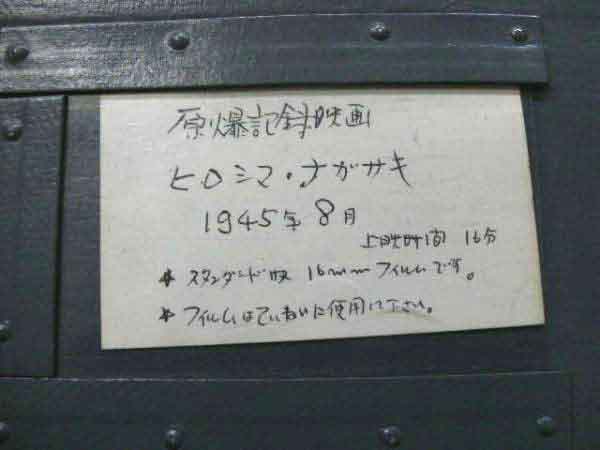 原爆記録映画
ヒロシマ・ナガサキ
1945年8月
上映時間 16分
* スタンダード版 16mmフィルムです。
* フィルムはていねいに使用して下さい。